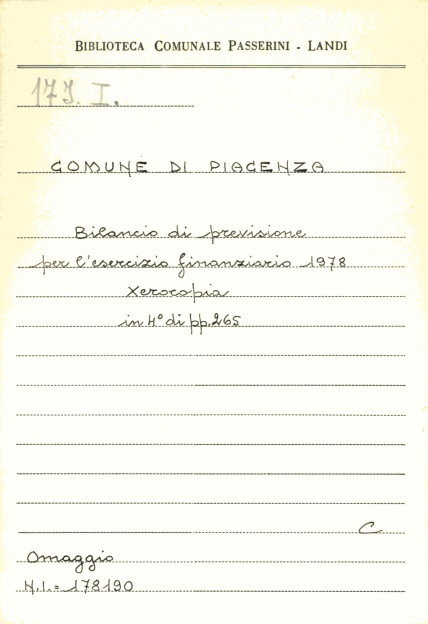 BIBLIOTECA COMUNALE PASSERINI - LANDI
173. I.
COMUNE DI PIACENZA
Bilancio di previsione
per l'esercizio finanziario 1978
Xerocopia
in 4° di pp. 265
C
Omaggio
N.I. = 178190